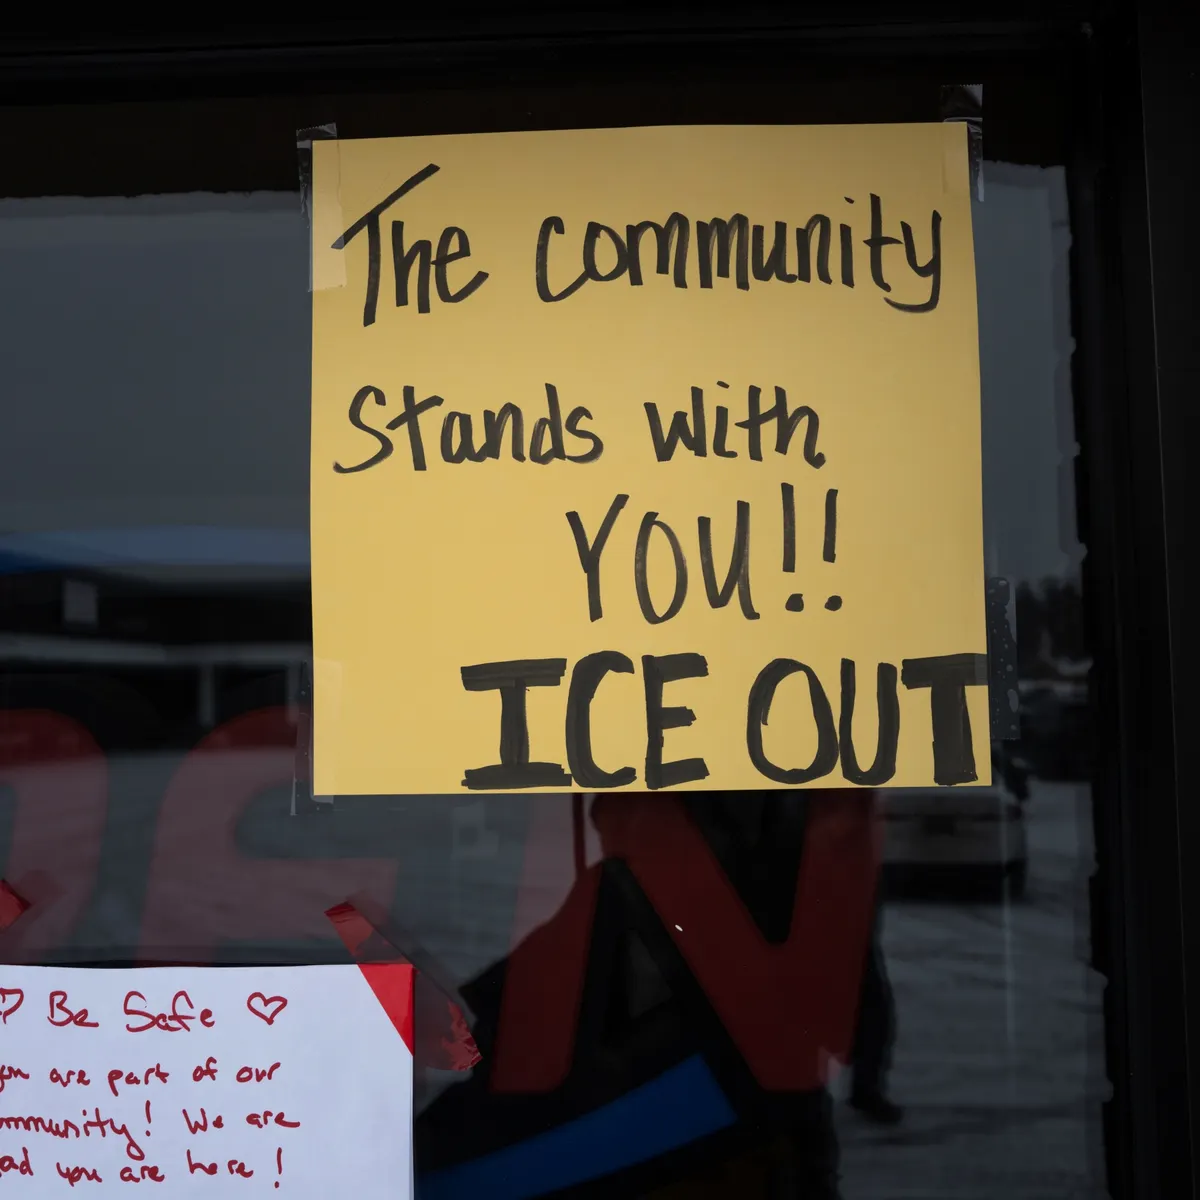 The community
Stands with
YOU!!
ICE OUT
OPEN
♡ Be Safe ♡
you are part of our
community! We are
glad you are here!